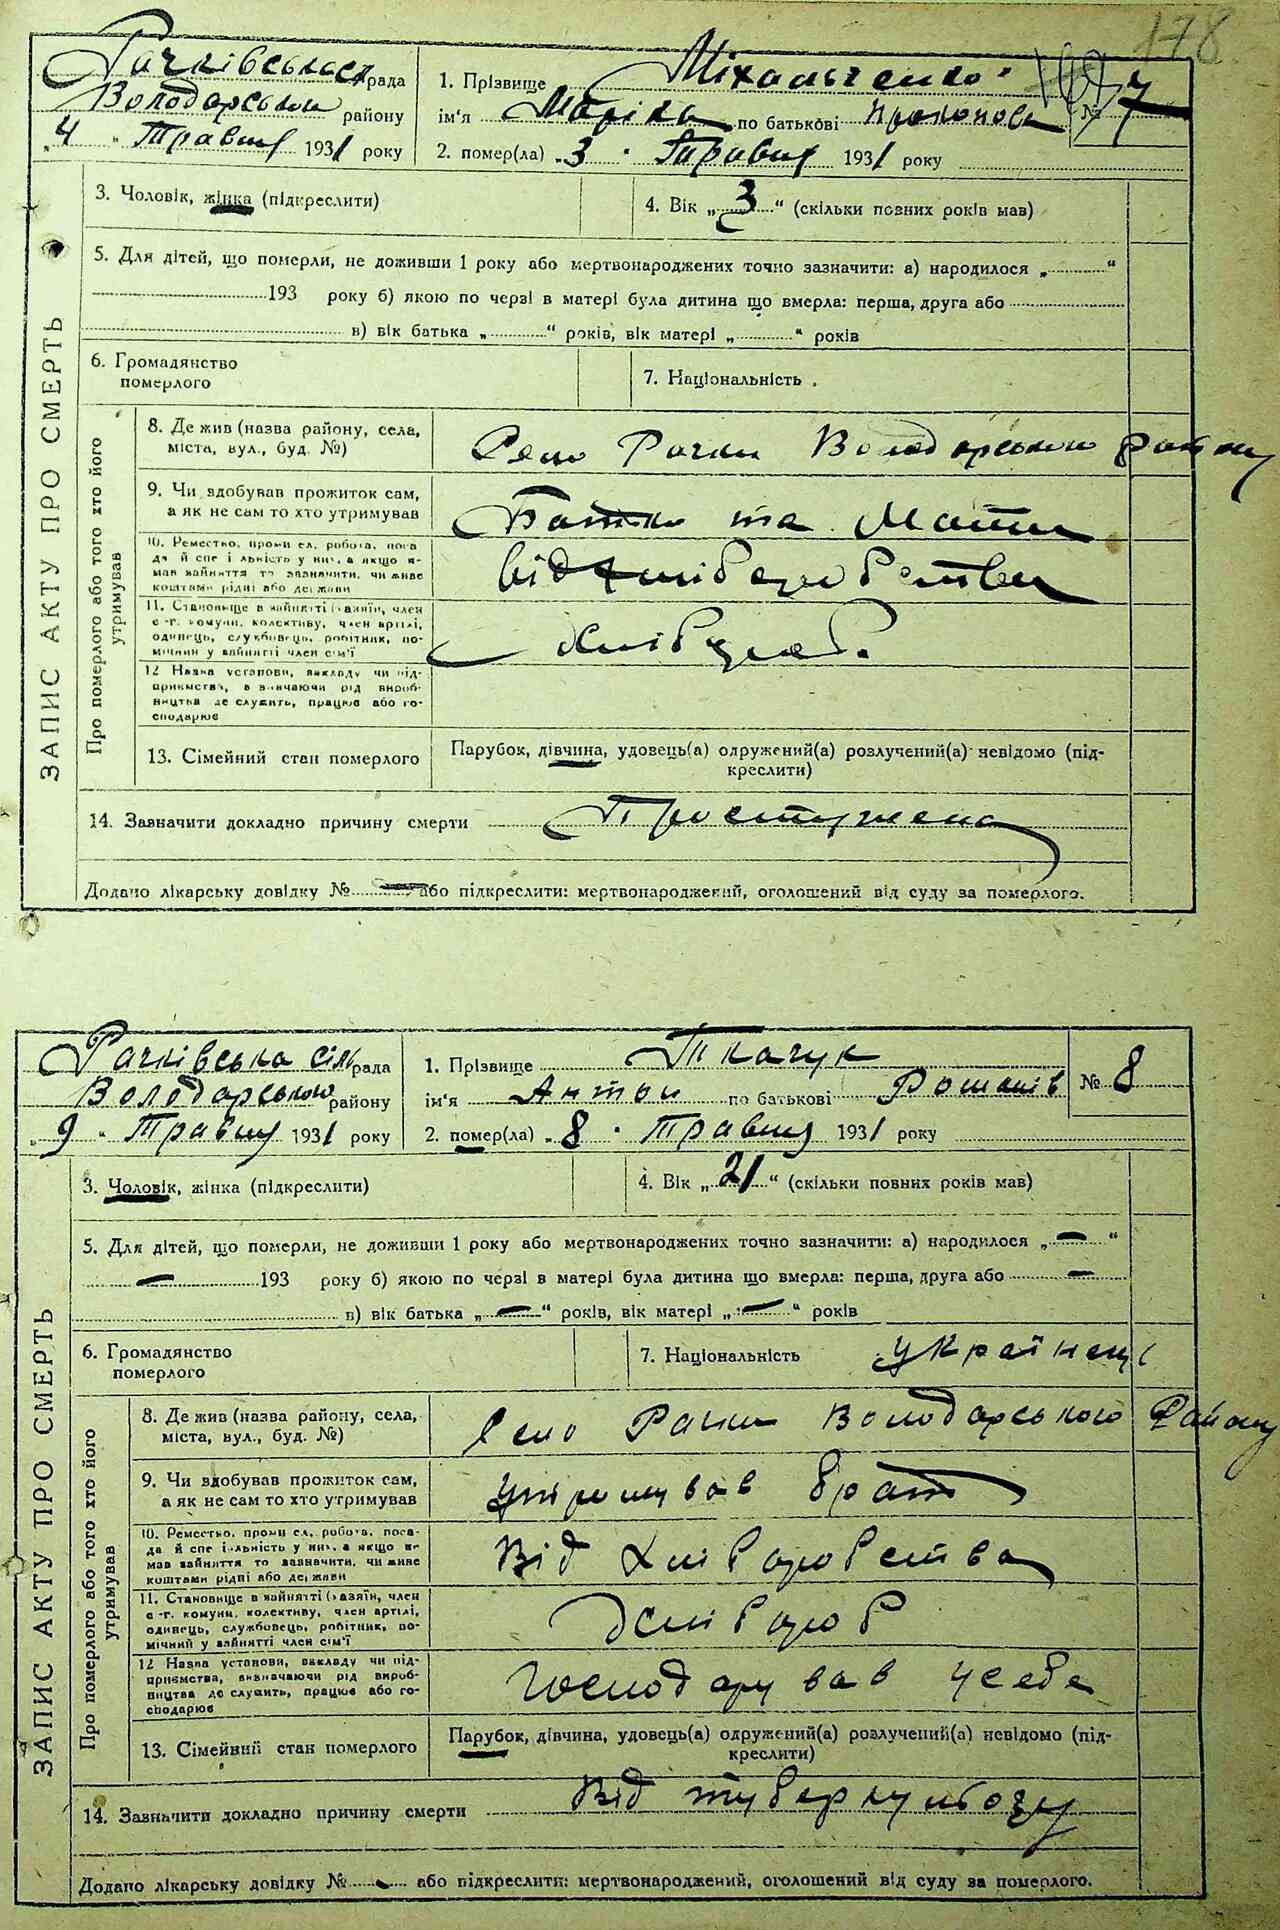 178
Рачківська рада
Володарськи району
„4“ Травня 1931 року
1. Прізвище Міхальченко
№ 7
ім'я Маріка по батькові Прокопова
2. помер(ла) „3“ Травня 1931 року
3. Чоловік, жінка (підкреслити)
4. Вік „3“ (скільки повних років мав)
5. Для дітей, що померли, не доживши 1 року або мертвонароджених точно зазначити: а) народилося „ “
193 року б) якою по черзі в матері була дитина що вмерла: перша, друга або
в) вік батька „ “ років, вік матері „ “ років
6. Громадянство
померлого
7. Національність
ЗАПИС АКТУ ПРО СМЕРТЬ
Про померлого або того хто його
утримував
8. Де жив (назва району, села,
міста, вул., буд. №)
Село Рачки Володарськи району
9. Чи здобував прожиток сам,
а як не сам то хто утримував
Батько та Мати
10. Ремество, проми ел, робота, поса
да й спе і льність у них, а якщо н-
мав зайняття то зазначити, чи живе
коштами рідні або держави
від хліборобства
11. Становище в зайнятті (хазяїн, член
с -г. комуни, колективу, член артілі,
одинець, службовець, робітник, по-
мічник у зайнятті член сім'ї
хлібороб.
12 Назва установи, закладу чи під-
приємства, визначаючи рід вироб-
ництва де служить, працює або го-
сподарює
13. Сімейний стан померлого
Парубок, дівчина, удовець(а) одружений(а) розлучений(а) невідомо (під-
креслити)
14. Зазначити докладно причину смерти Простужена
Додано лікарську довідку № — або підкреслити: мертвонароджений, оголошений від суду за померлого.
Рачківська сіль рада
Володарського району
„9“ Травня 1931 року
1. Прізвище Ткачук
№ 8
ім'я Антон по батькові
2. помер(ла) „8“ Травня 1931 року
3. Чоловік, жінка (підкреслити)
4. Вік „21“ (скільки повних років мав)
5. Для дітей, що померли, не доживши 1 року або мертвонароджених точно зазначити: а) народилося „—“
— 193 року б) якою по черзі в матері була дитина що вмерла: перша, друга або —
в) вік батька „—“ років, вік матері „—“ років
6. Громадянство
померлого
7. Національність Українец
ЗАПИС АКТУ ПРО СМЕРТЬ
Про померлого або того хто його
утримував
8. Де жив (назва району, села,
міста, вул., буд. №)
Село Рачки Володарського Району
9. Чи здобував прожиток сам,
а як не сам то хто утримував
утримував брат
10. Ремество, проми ел, робота, поса-
да й спе і льність у них, а якщо н-
мав зайняття то зазначити, чи живе
коштами рідні або держави
Від хліборобства
11. Становище в зайнятті (хазяїн, член
с -г. комуни, колективу, член артілі,
одинець, службовець, робітник, по-
мічний у зайнятті член сім'ї
хлібороб
12 Назва установи, закладу чи під-
приємства, визначаючи рід вироб-
ництва де служить, працює або го-
сподарює
Господарував у себе
13. Сімейний стан померлого
Парубок, дівчина, удовець(а) одружений(а) розлучений(а) невідомо (під-
креслити)
14. Зазначити докладно причину смерти Від туберкульозу
Додано лікарську довідку № — або підкреслити: мертвонароджений, оголошений від суду за померлого.